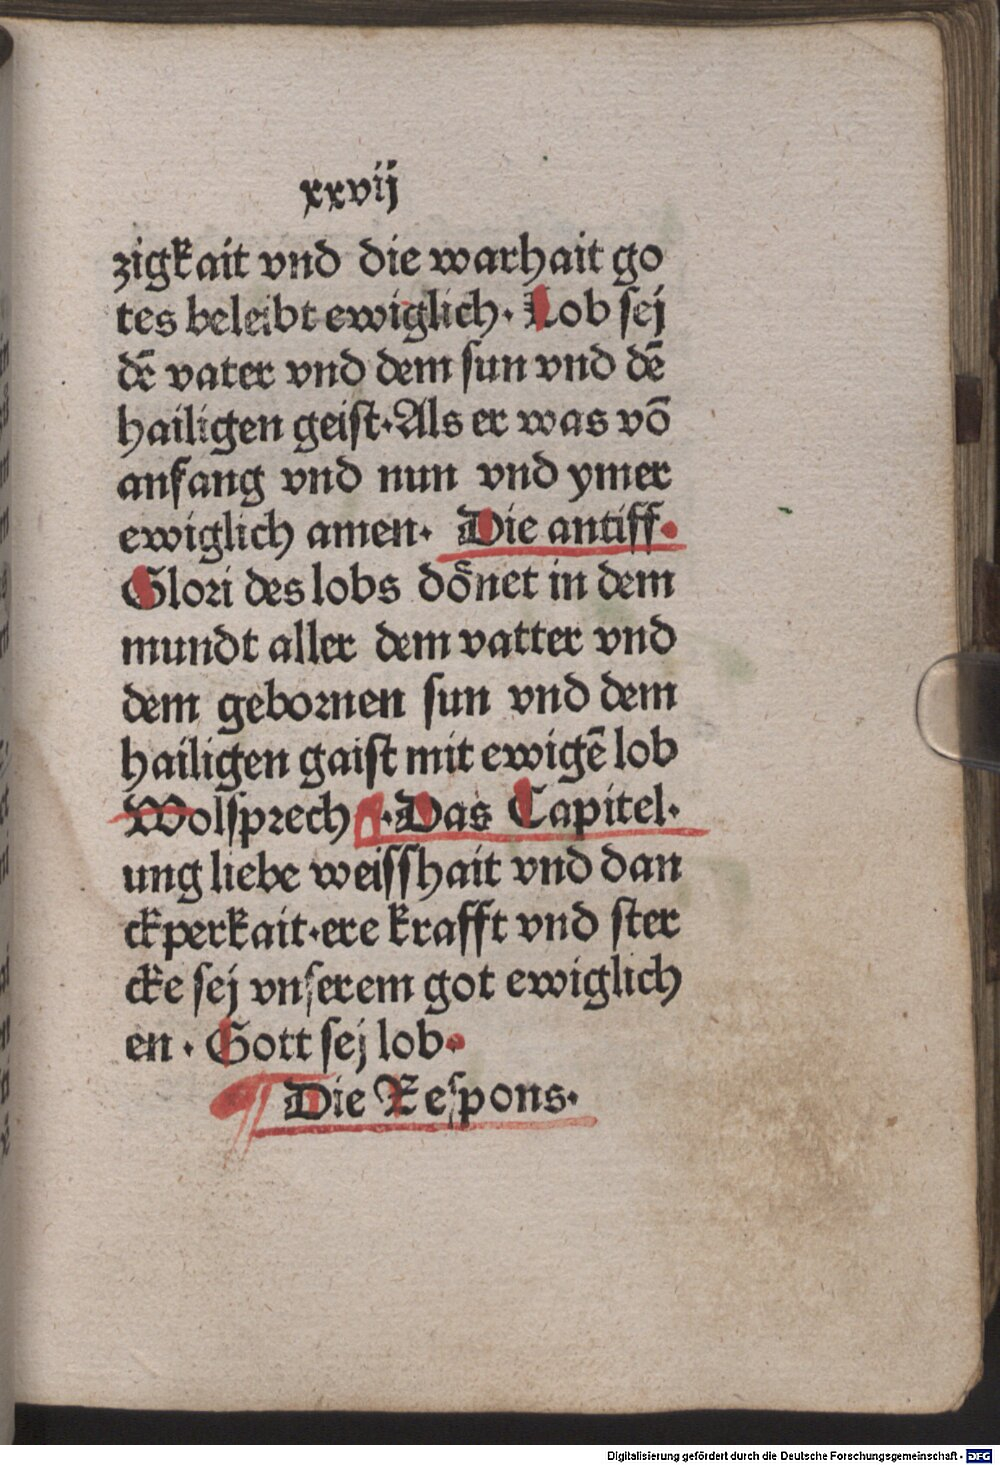 xxvij
zigkait vnd die warhait go
tes beleibt ewiglich. Lob sej
dē vater vnd dem sun vnd dē
hailigen geist. Als er was vō
anfang vnd nun vnd ymer
ewiglich amen. Die antiff.
Glori des lobs dönet in dem
mundt aller dem vatter vnd
dem gebornen sun vnd dem
hailigen gaist mit ewigē lob
Wolsprech .Das Capitel.
ung liebe weisshait vnd dan
ckperkait.ere krafft vnd ster
cke sej vnserem got ewiglich
en. Gott sej lob.
Die Respons.
Digitalisierung gefördert durch die Deutsche Forschungsgemeinschaft - DFG